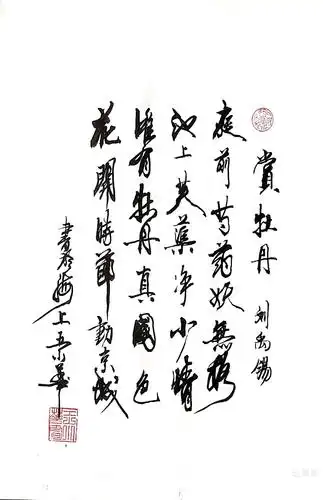 賞牡丹 刘禹錫
庭前芍药妖無格
池上芙蕖净少情
唯有牡丹真國色
花開時節動京城
書於海上